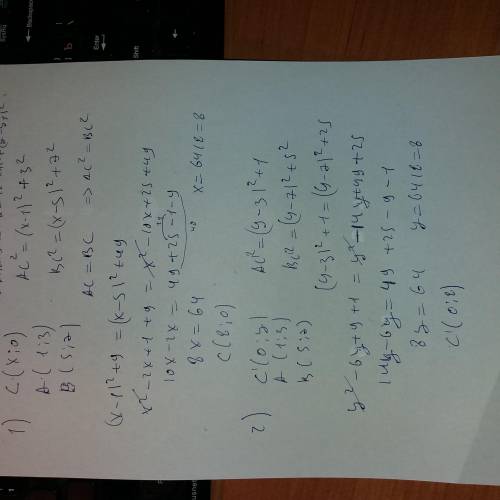 1) C(x;0) AC² = (x-1)² + 3²
A(1;3)
B(5;7) BC² = (x-5)² + 7²
AC = BC ⇒ AC² = BC²
(x-1)² + 9 = (x-5)² + 49
x² - 2x + 1 + 9 = x² - 10x + 25 + 49
10x - 2x = 49 + 25 - 1 - 9
8x = 64 x = 64/8 = 8
C(8;0)
2) C'(0;y) AC² = (y-3)² + 1
A(1;3)
B(5;7) BC² = (y-7)² + 5²
(y-3)² + 1 = (y-7)² + 25
y² - 6y + 9 + 1 = y² - 14y + 49 + 25
14y - 6y = 49 + 25 - 9 - 1
8y = 64 y = 64/8 = 8
C'(0;8)